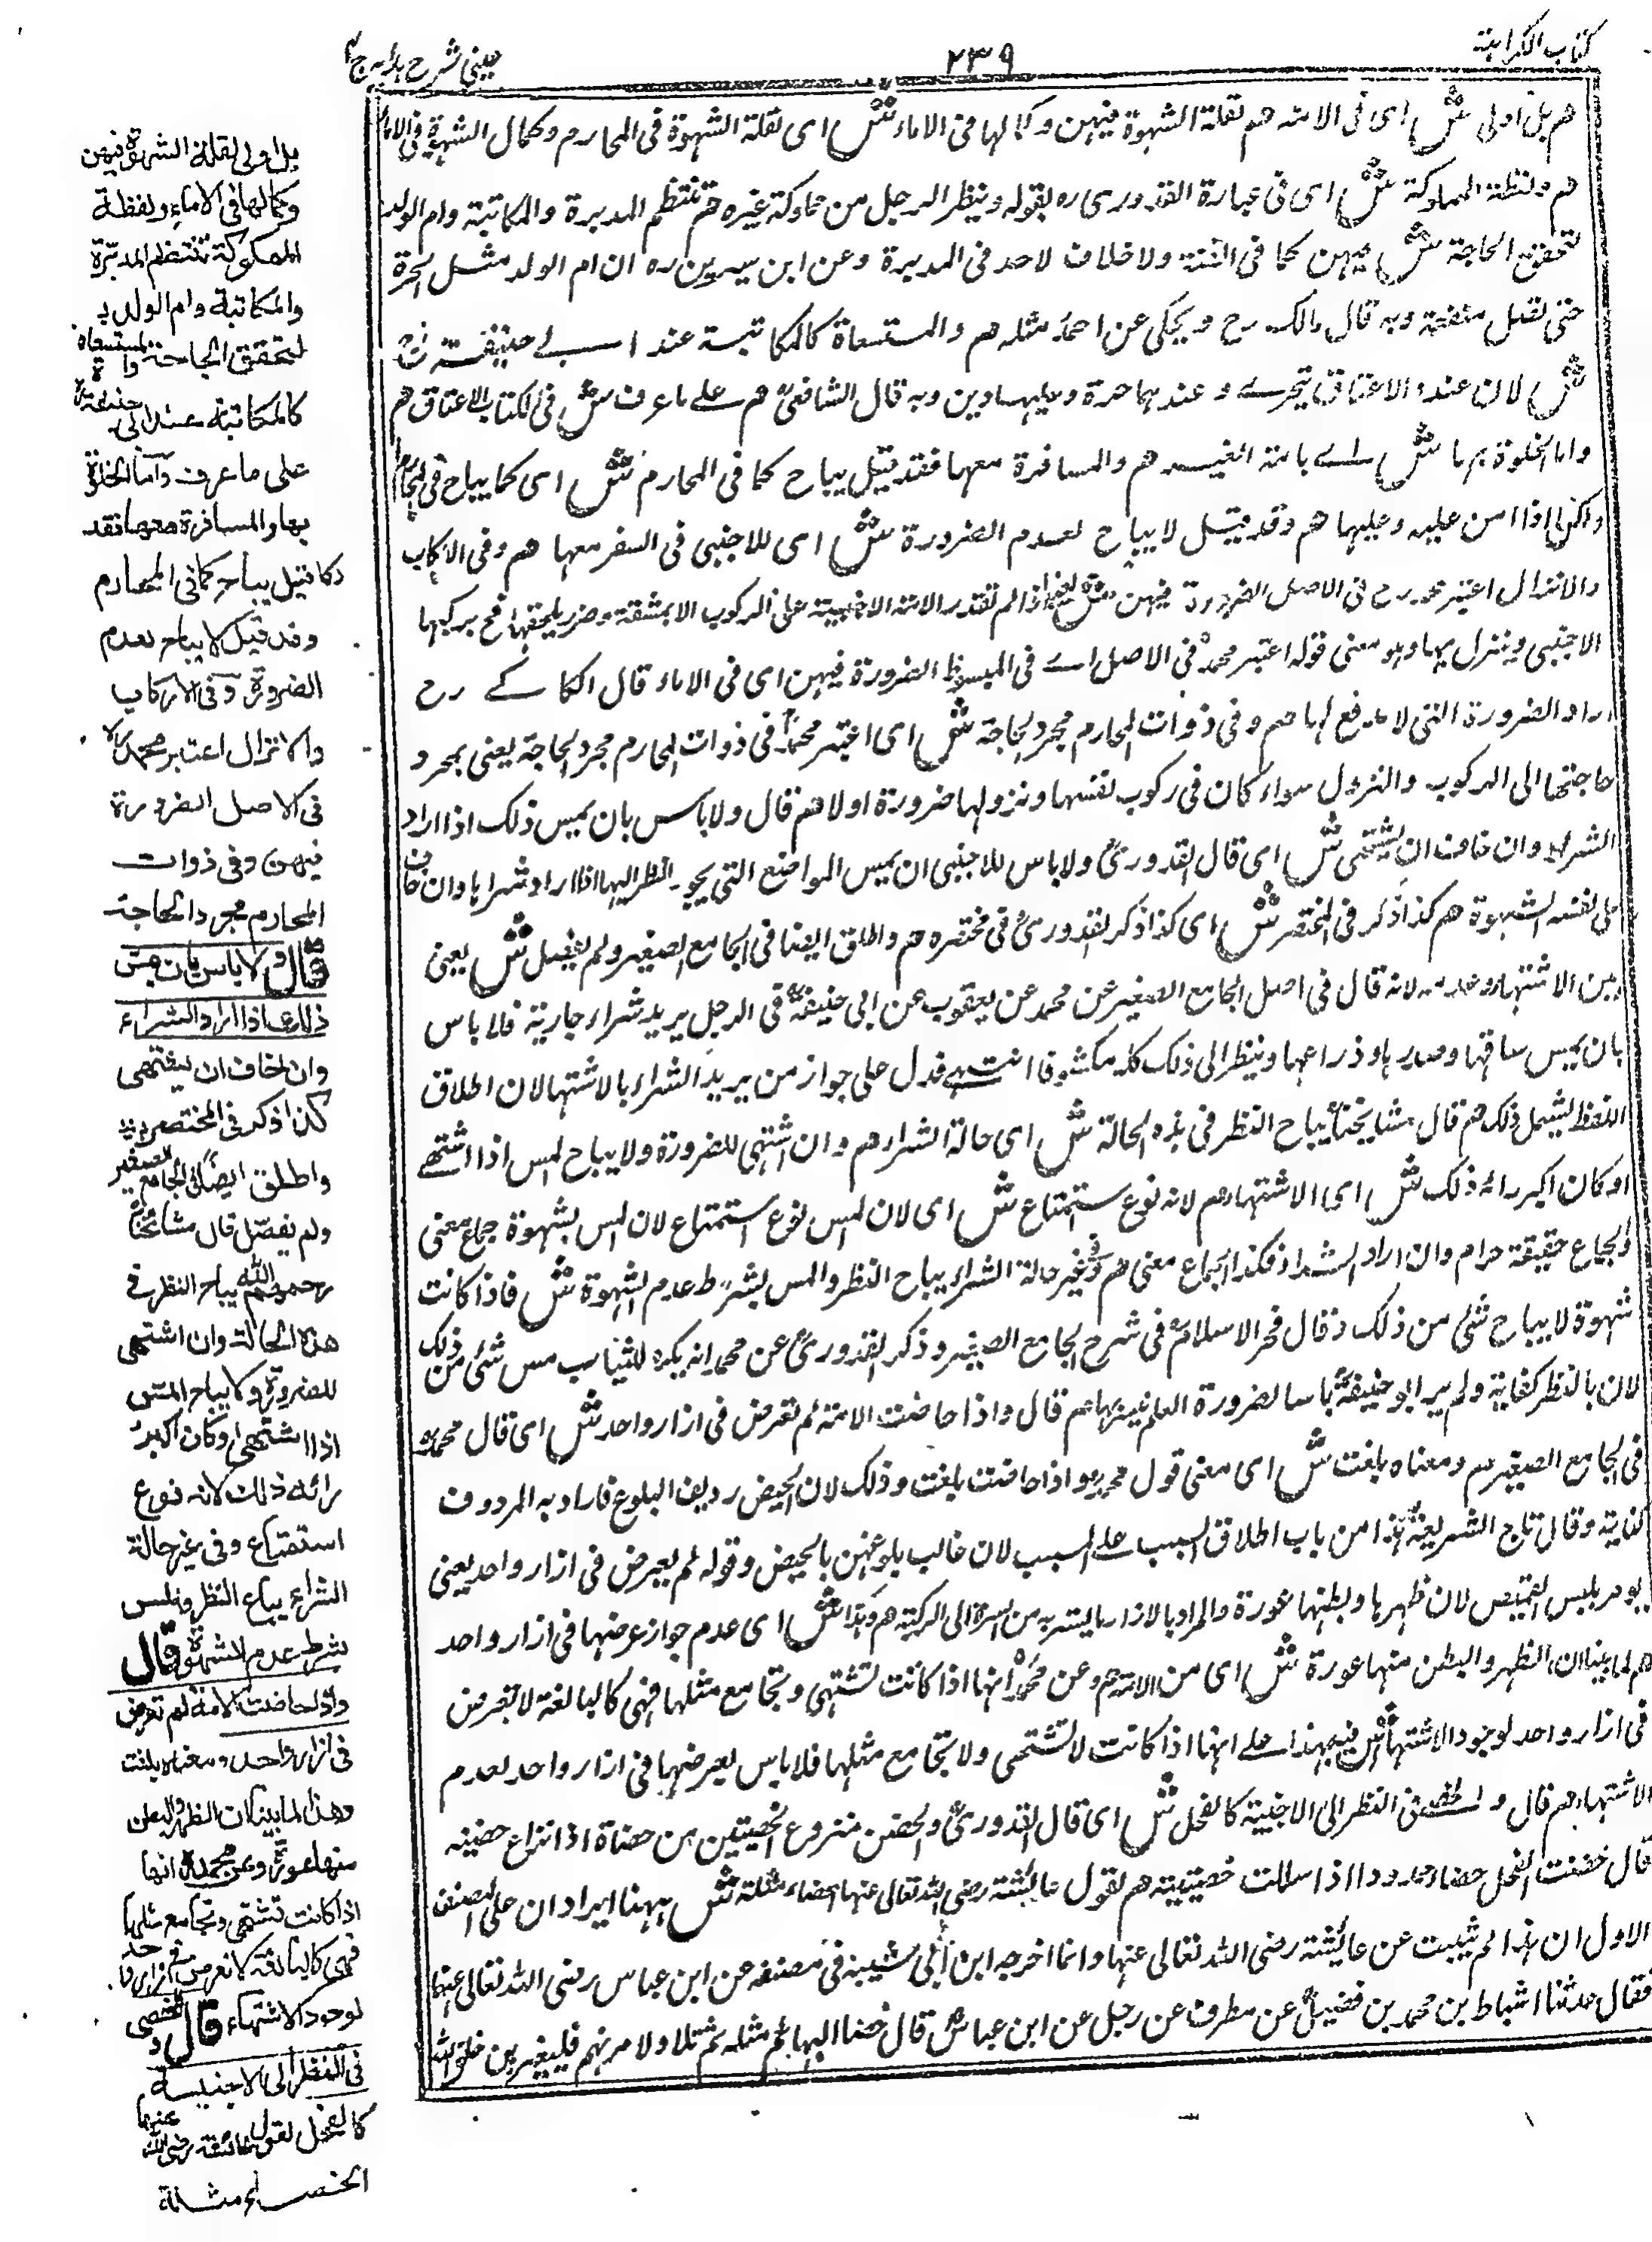 كتاب الكراهية
٢٣٩
عيني شرح هدايه ج ٤
هم بل اولى ش اى فى الامة هم لقلة الشهوة فيهن وكمالها فى الاماء ش اى لقلة الشهوة فى المحارم وكمال الشهوة فى الاماء
هم ولفظة المملوكة ش اى فى عبارة القدورى ره بقوله وينظر الرجل من مملوكة غيره هم تنتظم المدبرة والمكاتبة وام الولد
لتحقق الحاجة ش فيهن كما فى القنة ولا خلاف لاحد فى المدبرة وعن ابن سيرين ره ان ام الولد مثل الحرة
حتى تصلى متقنعة وبه قال مالك رح ويحكى عن احمد مثله هم والمستسعاة كالمكاتبة عند ابى حنيفة
ش لان عنده الاعتاق يتجزى وعندهما حرة وعليها دين وبه قال الشافعى هم على ما عرف ش فى كتاب الاعتاق هم
واما الخلوة بها ش اى بامة الغير هم والمسافرة معها فقد قيل يباح كما فى المحارم ش اى كما يباح فى المحارم
ولكن اذا امن عليه وعليها هم وقد قيل لا يباح لعدم الضرورة ش اى للاجنبى فى السفر معها هم وفى الاركاب
والانزال اعتبر محمد رح فى الاصل الضرورة فيهن ش يعنى اذا لم تقدر الامة الاجنبية على الركوب الا بمشقة وضرر يلحقها فح يركبها
الاجنبى وينزل بها وهو معنى قوله اعتبر محمد فى الاصل اى فى المبسوط الضرورة فيهن اى فى الاماء قال الكاكى رح
اراد الضرورة التى لا مدفع لها هم وفى ذوات المحارم مجرد الحاجة ش اى اعتبر محمد فى ذوات المحارم مجرد الحاجة يعنى بمجرد
حاجتها الى الركوب والنزول سواء كان فى ركوب نفسها ونزولها ضرورة اولا هم قال ولا باس بان يمس ذلك اذا اراد
الشراء وان خاف ان يشتهى ش اى قال القدورى ولا باس للاجنبى ان يمس المواضع التى يجوز النظر اليها اذا اراد شراءها وان خاف
على نفسه الشهوة هم كذا ذكر فى المختصر ش اى كذا ذكر القدورى فى مختصره هم واطلق ايضا فى الجامع الصغير ولم يفصل ش يعنى
بين الاشتهاء وعدمه لانه قال فى اصل الجامع الصغير عن محمد عن يعقوب عن ابى حنيفة فى الرجل يريد شراء جارية فلا باس
بان يمس ساقها وصدرها وذراعها وينظر الى ذلك كله مكشوفا انتهى فدل على جواز من يريد الشراء بالاشتهاء لان اطلاق
اللفظ يشمل ذلك هم قال مشايخنا يباح النظر فى هذه الحالة ش اى حالة الشراء هم وان اشتهى للضرورة ولا يباح المس اذا اشتهى
او كان اكبر رائه ذلك ش اى الاشتهاء هم لانه نوع استمتاع ش اى لان المس نوع استمتاع لان المس بشهوة جماع معنى
والجماع حقيقة حرام وان اراد الشراء فكذا الجماع معنى هم وفى غير حالة الشراء يباح النظر والمس بشرط عدم الشهوة ش فاذا كانت
شهوة لا يباح شئ من ذلك وقال فخر الاسلام فى شرح الجامع الصغير وذكر القدورى عن محمد انه يكره للشاب مس شئ من ذلك
لان بالنظر كفاية ولم ير ابو حنيفة باسا لضرورة العلم ببشرتها هم قال واذا حاضت الامة لم تعرض فى ازار واحد ش اى قال محمد
فى الجامع الصغير هم ومعناه بلغت ش اى معنى قول محمد اذا حاضت بلغت وذلك لان الحيض رديف البلوغ فاراد به المردوف
كناية وقال تاج الشريعة هذا من باب اطلاق السبب على المسبب لان غالب بلوغهن بالحيض وقوله لم يعرض فى ازار واحد يعنى
يومر بلبس القميص لان ظهرها وبطنها عورة والمراد بالازار ما يستر به من السرة الى الركبة هم وهذا ش اى عدم جواز عرضها فى ازار واحد
هم لما بينا ان الظهر والبطن منها عورة ش اى من الامة هم وعن محمد انها اذا كانت تشتهى وتجامع مثلها فهى كالبالغة لا تعرض
فى ازار واحد لوجود الاشتهاء ش فبهذا على انها اذا كانت لا تشتهى ولا تجامع مثلها فلا باس بعرضها فى ازار واحد لعدم
الاشتهاء هم قال والخصى فى النظر الى الاجنبية كالفحل ش اى قال القدورى والخصى منزوع الخصيتين من خصاه اذا نزع خصيته
قال خصيت الفحل خصاء ممدودا اذا سللت خصيتيه هم لقول عائشة رضى الله تعالى عنها الخصاء مثلة ش ههنا ايراد ان على المصنف
الاول ان هذا لم يثبت عن عائشة رضى الله تعالى عنها وانما اخرجه ابن ابى شيبة فى مصنفه عن ابن عباس رضى الله تعالى عنهما
فقال حدثنا اسباط بن محمد بن فضيل عن مطرف عن رجل عن ابن عباس قال خصاء البهائم مثله ثم تلا ولآمرنهم فليغيرن خلق الله
بل اولى لقلة الشهوة فيهن
وكمالها فى الاماء ولفظة
المملوكة تنتظم المدبرة
والمكاتبة وام الولد
لتحقق الحاجة والمستسعاة
كالمكاتبة عند ابى حنيفة
على ما عرف واما الخلوة
بها والمسافرة معها فقد
قيل يباح كما فى المحارم
وقد قيل لا يباح لعدم
الضرورة وفى الاركاب
والانزال اعتبر محمد
فى الاصل الضرورة
فيهن وفى ذوات
المحارم مجرد الحاجة
قال ولا باس بان يمس
ذلك اذا اراد الشراء
وان خاف ان يشتهى
كذا ذكر فى المختصر
واطلق ايضا فى الجامع الصغير
ولم يفصل قال مشائخنا
رحمهم الله يباح النظر فى
هذه الحالة وان اشتهى
للضرورة ولا يباح المس
اذا اشتهى او كان اكبر
رائه ذلك لانه نوع
استمتاع وفى غير حالة
الشراء يباح النظر والمس
بشرط عدم الشهوة قال
واذا حاضت الامة لم تعرض
فى ازار واحد ومعناه بلغت
وهذا لما بينا ان الظهر والبطن
منها عورة وعن محمد انها
اذا كانت تشتهى وتجامع مثلها
فهى كالبالغة لا تعرض فى ازار واحد
لوجود الاشتهاء قال والخصى
فى النظر الى الاجنبية
كالفحل لقول عائشة رضى الله عنها
الخصاء مثلة